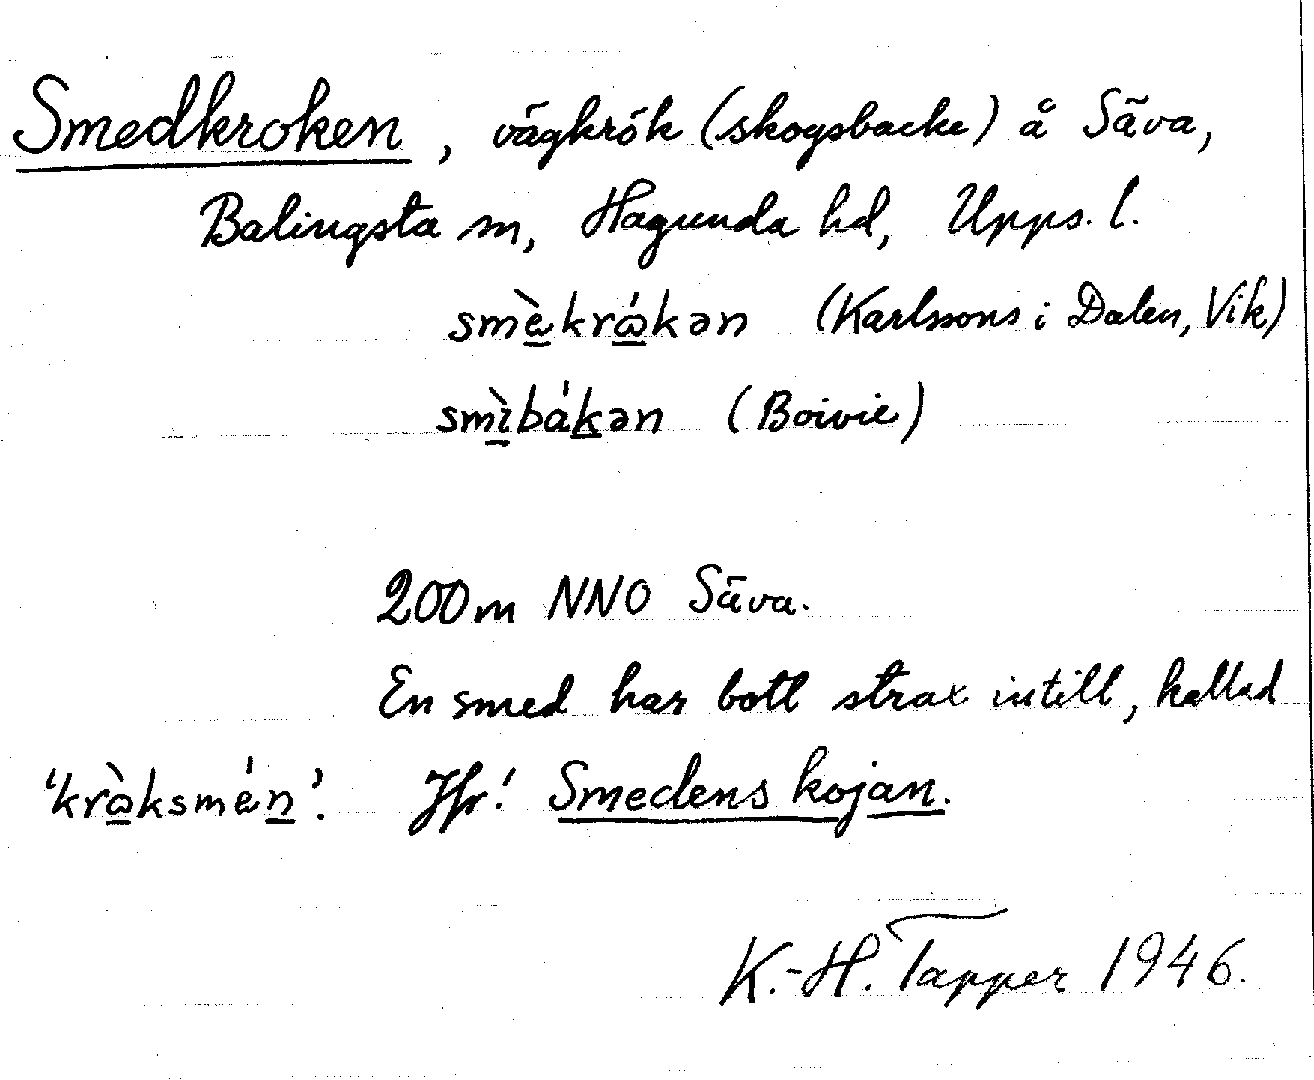 Smedkroken, vägkrök (skogsbacke) å Säva,
Balingsta sn, Hagunda hd, Upps. l.
smèkrákən (Karlssons i Dalen, Vik)
smìbákən (Boivie)
200m NNO Säva.
En smed har bott strax intill, kallad
'kràksmén'. Jfr! Smedens kojan.
K.-H. Tapper 1946.